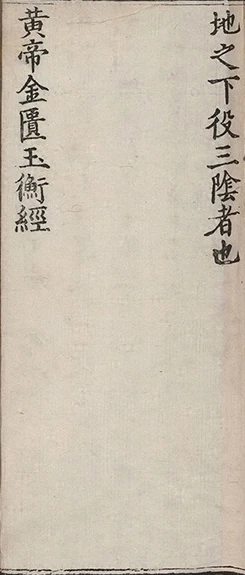 地之下役三陰者也
黃帝金匱玉衡經